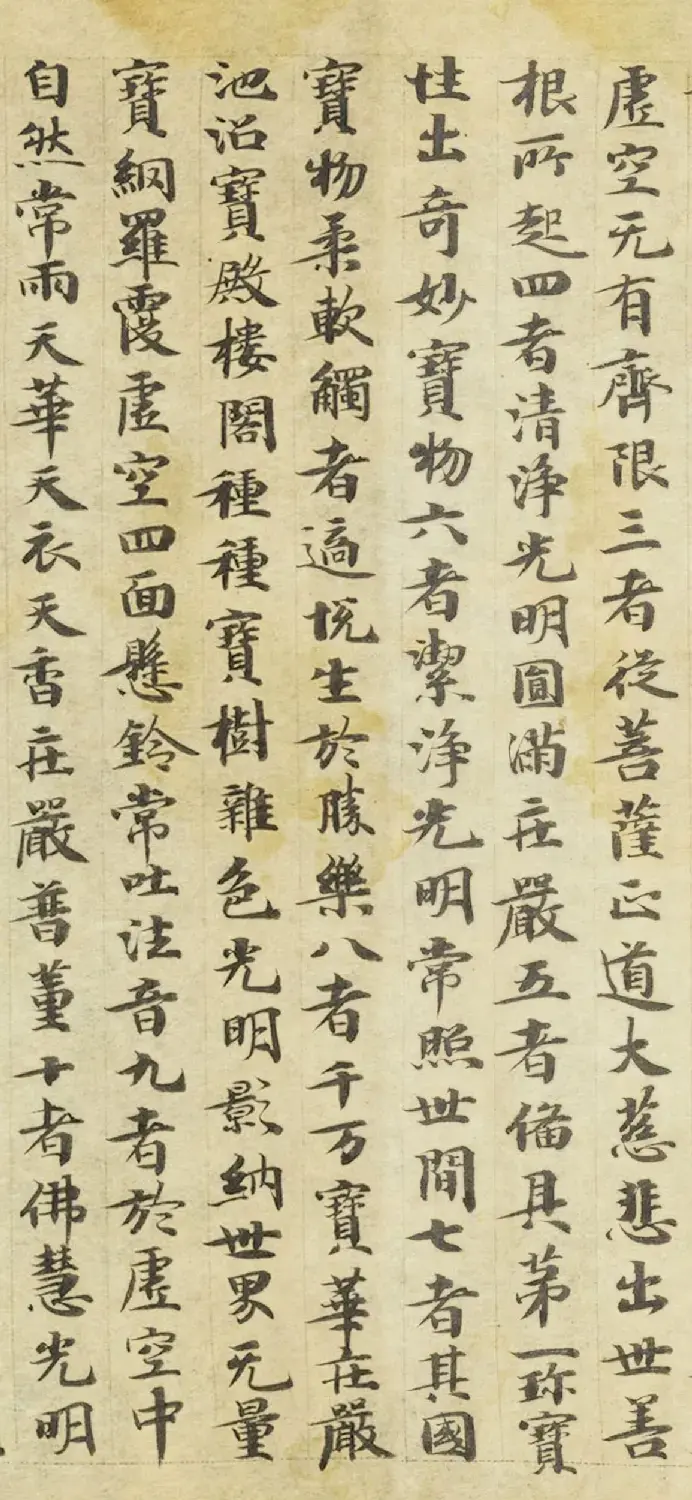 虛空无有齊限三者從菩薩正道大慈悲出世善
根所起四者清淨光明圓滿莊嚴五者備具第一珎寶
性出奇妙寶物六者潔淨光明常照世間七者其國
寶物柔軟觸者適悅生於勝樂八者千万寶華莊嚴
池沼寶殿樓閣種種寶樹雜色光明影納世界无量
寶網羅覆虛空四面懸鈴常吐法音九者於虛空中
自然常雨天華天衣天香莊嚴普薰十者佛慧光明